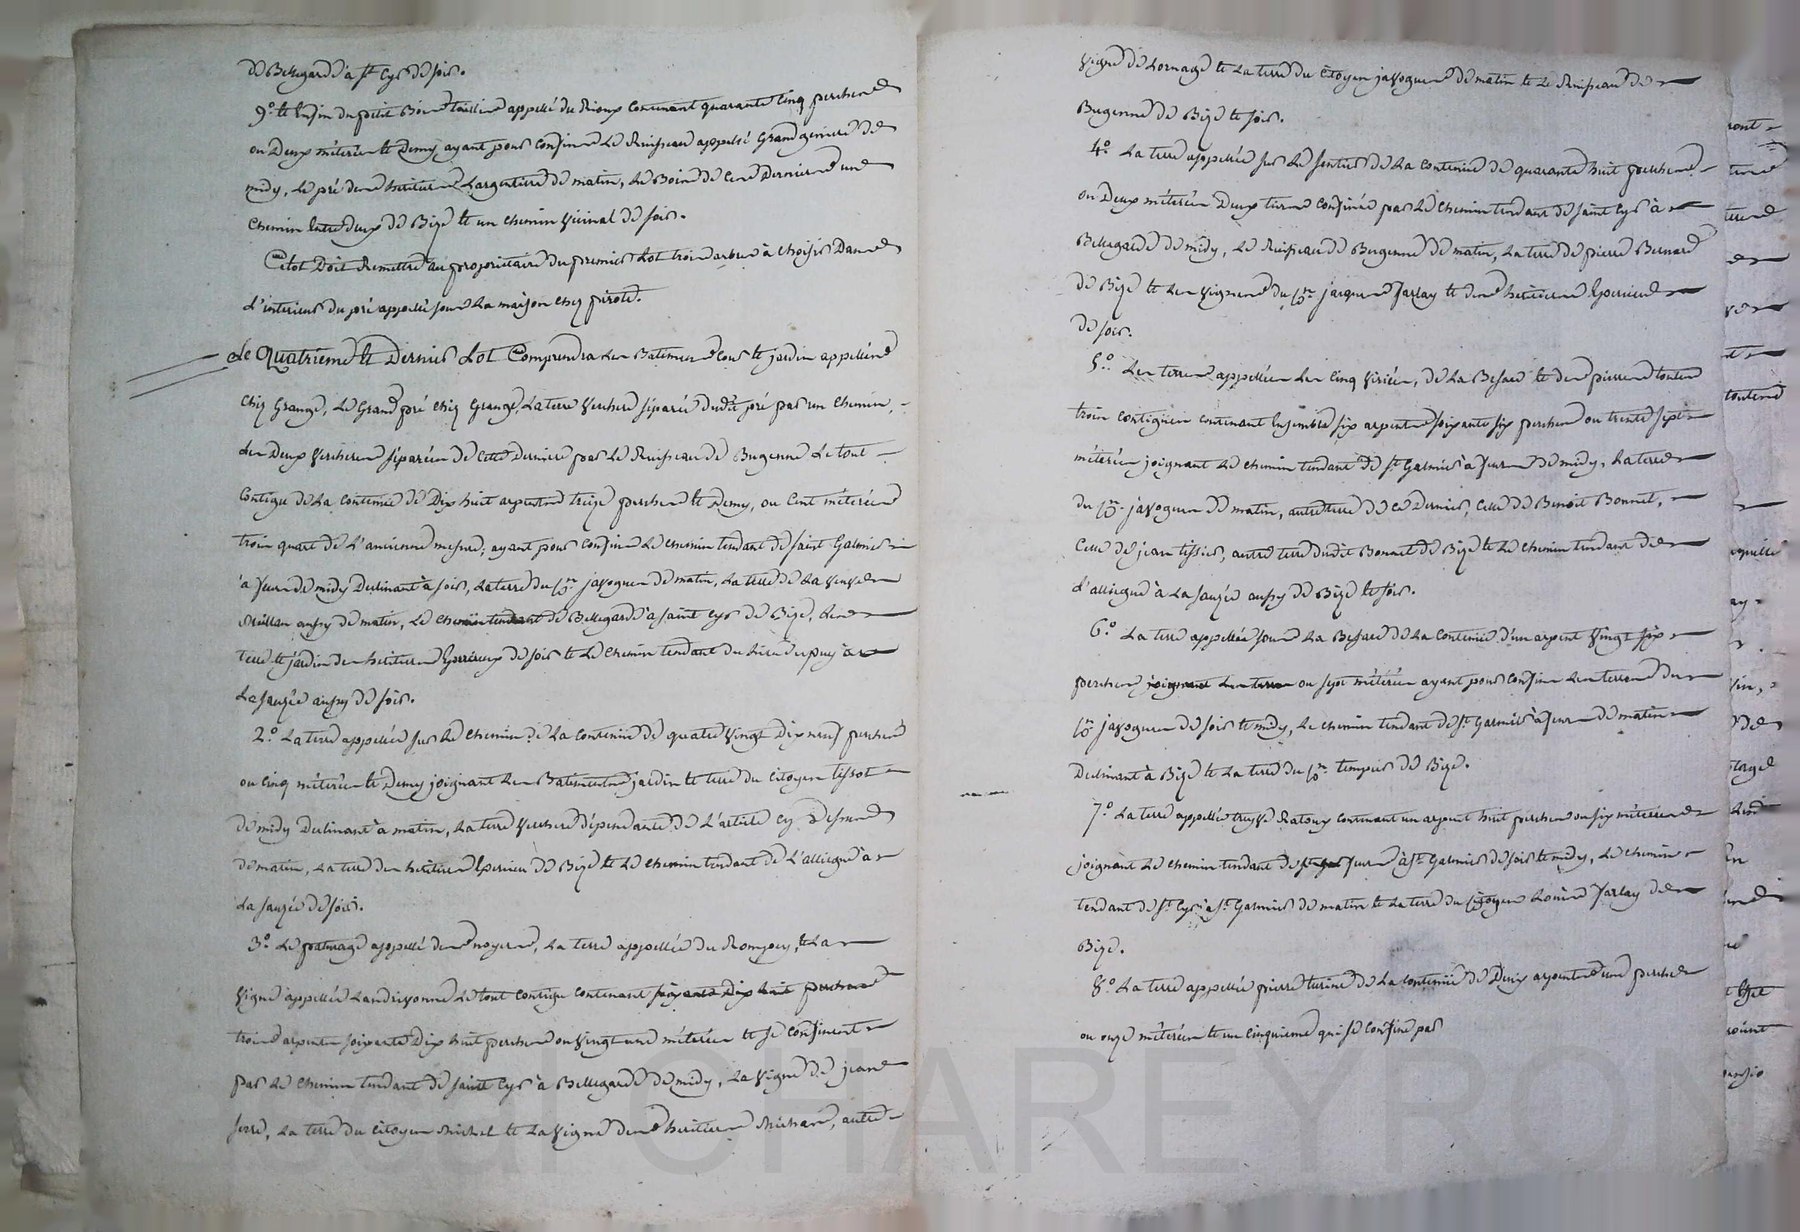 de Bellegarde à St Cyr de soir.
9.º et Enfin du petit Bois taillis appellé du Rioux contenant quarante cinq perches
ou Deux méterées et Demy ayant pour confins Le Ruisseau appellé Grandgeniere de
midy, Le pré des heritiers Largentiere de matin, Le Bois de Ces Derniers une
chemin Entre deux de Bize et un chemin vicinal de soir.
Ce lot Doit Remettre au propriétaire du premier Lot trois arbres à choisir Dans
L'interieur du pré appellé sous La maison chez pirote.
Le Quatrieme et Dernier Lot Comprendra Les Batiments Cour et jardin appellés
chez Grange, Le Grand pré chez Grange, La terre verchere séparée dudit pré par un chemin,
Les Deux vercheres séparées de Cette Derniere par Le Ruisseau de Bugenne Le tout
Contigu de La Contenue de Dix huit arpents treize perches et Demy, ou Cent méterées
trois quart de L'ancienne mesure; ayant pour confins Le chemin tendant de saint Galmier
à feurs de midy Declinant à soir, La terre du Cn. javogues de matin, La terre de La veuve
aussy de matin, Le chemin tendant de Bellegarde à saint Cyr de Bize, Les
terre et jardin des heritiers de soir et Le chemin tendant du Lieu du puy à
La sauzée aussy de soir.
2.º La terre appellée sur Le chemin de La Contenue de quatre vingt Dix neuf perches
ou cinq méterées et Demy joignant Les Batiments jardin et terre du Citoyen tissot
de midy Declinant à matin, La terre verchere dépendante de L'article cy Dessus
de matin, La terre des heritiers de Bize et Le chemin tendant de L'alliegue à
La sauzée de soir.
3.º Le paturage appellé des noyers, La terre appellée du Rompey, et La
vigne appellée Landrivonne Le tout contigu contenant soixante Dix huit perches
trois arpents soixante Dix huit perches ou vingt une méterées et se confinent
par Le chemin tendant de saint Cyr à Bellegarde de midy, La vigne de jean
serre, La terre du Citoyen Michel et La vigne des heritiers Michard, autre
vigne de Lornage et La terre du Citoyen javogues de matin et Le Ruisseau de
Bugenne de Bize et soir.
4.º La terre appellée sur Le sentier de La Contenue de quarante huit perches
ou Deux méterées Deux tiers confinée par Le chemin tendant de saint Cyr à
Bellegarde de midy, Le Ruisseau de Bugenne de matin, La terre de pierre Bernard
de Bize et Les vignes du Cn. jacques farlay et des heritiers
de soir.
5.º Les terres appellées Les Cinq virées, de La Besace et des pierres toutes
trois contigues contenant Ensemble six arpents soixante six perches ou trente sept
méterées joignant Le chemin tendant de St Galmier à feurs de midy, La terre
du Cn. javogues de matin, autre terre de ce Dernier, Celle de Benoit Bonnet,
Celle de jean tissier, autre terre dudit Bonnet de Bize et Le chemin tendant de
L'alliegue à La sauzée aussy de Bize et soir.
6.º La terre appellée sous La Besace de La Contenue d'un arpent vingt six
perches joignant Les terres ou sept méterées ayant pour confins Les terres du
Cn. javogues de soir et midy, Le chemin tendant de St Galmier à feurs de matin
Declinant à Bize et La terre du Cn. tempier de Bize.
7.º La terre appellée Ratoux contenant un arpent huit perches ou six méterées
joignant Le chemin tendant de feurs à St Galmier de soir et midy, Le chemin
tendant de St Cyr à St Galmier de matin et La terre du Citoyen Louis farlay de
Bize.
8.º La terre appellée pierre turine de La Contenue de Deux arpents une perche
ou onze méterées et un cinquieme qui se confine par
CHAREYRON